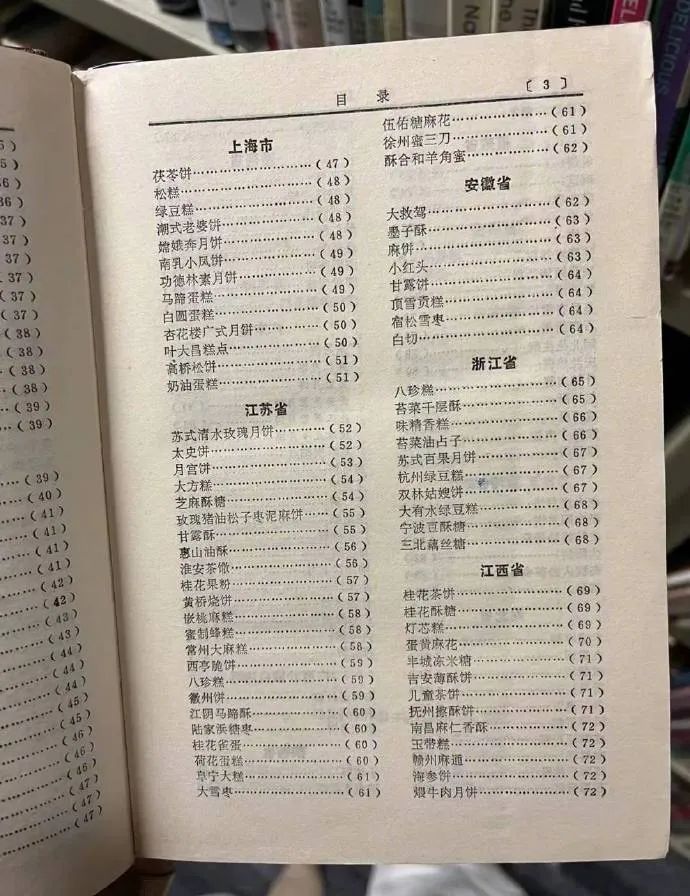 目 录
〔 3 〕
上海市
茯苓饼……………………(47)
松糕……………………(48)
绿豆糕……………………(48)
潮式老婆饼……………………(48)
嫦娥奔月饼……………………(48)
南乳小凤饼……………………(49)
功德林素月饼……………………(49)
马蹄蛋糕……………………(49)
白圆蛋糕……………………(50)
杏花楼广式月饼……………………(50)
叶大昌糕点……………………(50)
高桥松饼……………………(51)
奶油蛋糕……………………(51)
江苏省
苏式清水玫瑰月饼……………………(52)
太史饼……………………(52)
月宫饼……………………(53)
大方糕……………………(54)
芝麻酥糖……………………(54)
玫瑰猪油松子枣泥麻饼……………………(55)
甘露酥……………………(55)
惠山油酥……………………(56)
淮安茶馓……………………(56)
桂花果粉……………………(57)
黄桥烧饼……………………(57)
嵌桃麻糕……………………(58)
蜜制蜂糕……………………(58)
常州大麻糕……………………(58)
西亭脆饼……………………(59)
八珍糕……………………(59)
徽州饼……………………(59)
江阴马蹄酥……………………(60)
陆家浜糖枣……………………(60)
桂花雀蛋……………………(60)
荷花蛋糕……………………(60)
阜宁大糕……………………(61)
大雪枣……………………(61)
伍佑糖麻花……………………(61)
徐州蜜三刀……………………(61)
酥合和羊角蜜……………………(62)
安徽省
大救驾……………………(62)
墨子酥……………………(63)
麻饼……………………(63)
小红头……………………(63)
甘露饼……………………(64)
顶雪贡糕……………………(64)
宿松雪枣……………………(64)
白切……………………(64)
浙江省
八珍糕……………………(65)
苔菜千层酥……………………(65)
味精香糕……………………(66)
苔菜油占子……………………(66)
苏式百果月饼……………………(67)
杭州绿豆糕……………………(67)
双林姑嫂饼……………………(67)
大有水绿豆糕……………………(68)
宁波豆酥糖……………………(68)
三北藕丝糖……………………(68)
江西省
桂花茶饼……………………(69)
桂花酥糖……………………(69)
灯芯糕……………………(69)
蛋黄麻花……………………(70)
丰城冻米糖……………………(71)
吉安薄酥饼……………………(71)
儿童茶饼……………………(71)
抚州擦酥饼……………………(71)
南昌麻仁香酥……………………(72)
玉带糕……………………(72)
赣州麻通……………………(72)
海参饼……………………(72)
煨牛肉月饼……………………(72)
37)
37)
(37)
(38)
(38)
(38)
(39)
(39)
(39)
(40)
(41)
(41)
(41)
(41)
(42)
(42)
(43)
(43)
(44)
(44)
(45)
(45)
(46)
(46)
(47)
(47)
DELICIOUS